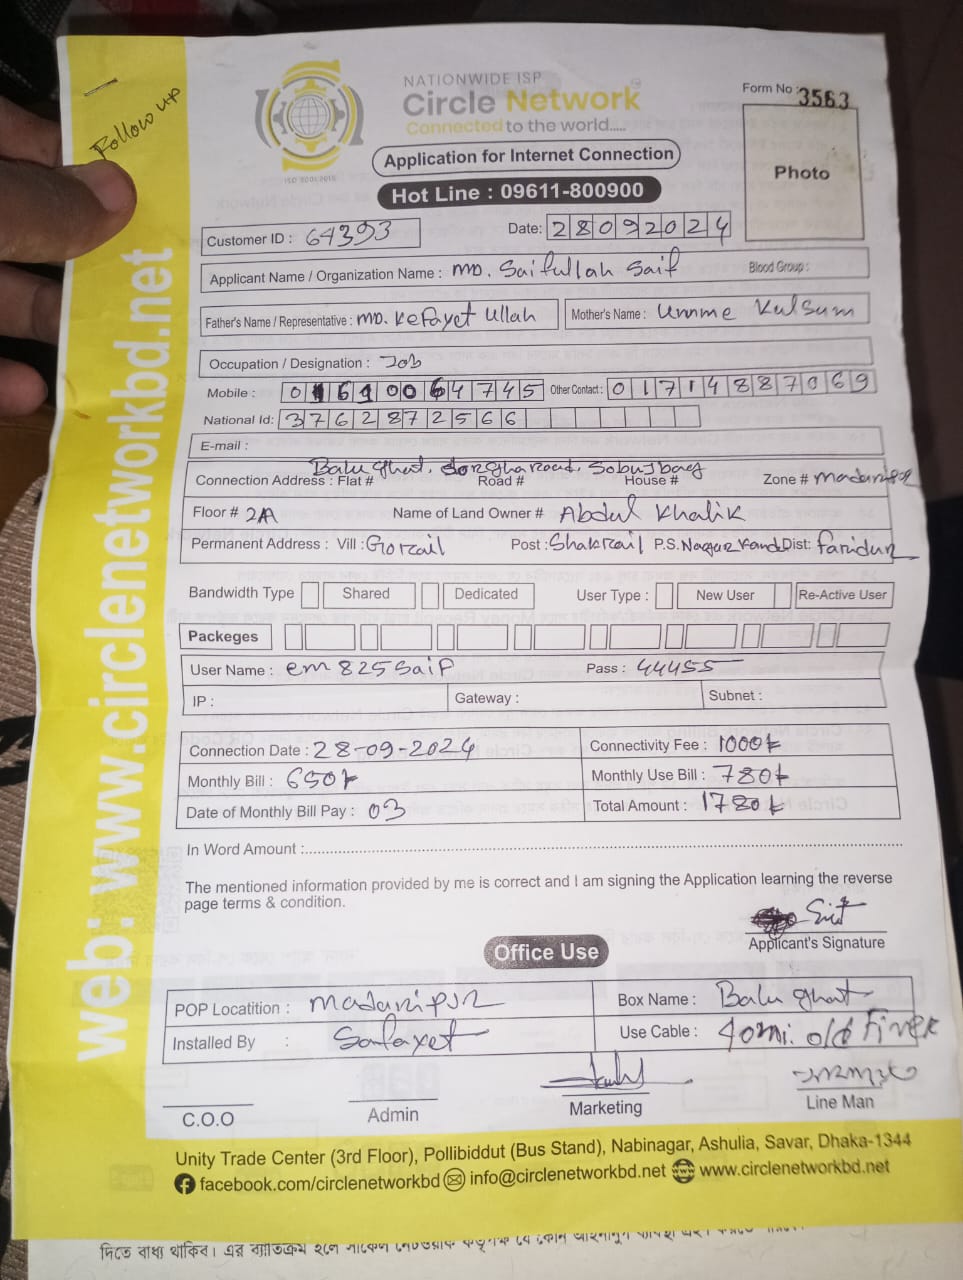 Follow up
NATIONWIDE ISP
Circle Network
Connected to the world.....
ISO 9001:2015
Application for Internet Connection
Hot Line : 09611-800900
Form No : 3563
Photo
Customer ID : 64393 Date: 28092024
Applicant Name / Organization Name : MD. Saifullah Saif Blood Group :
Father's Name / Representative : MD. Kefayet Ullah Mother's Name : Ummme Kulsum
Occupation / Designation : Job
Mobile : 01610064745 Other Contact : 01714887069
National Id: 3762872566
E-mail :
Balu ghat, road, Sobujbag
Connection Address : Flat # Road # House # Zone #
Floor # 2A Name of Land Owner # Abdul Khalik
Permanent Address : Vill : Post : P.S. Dist:
Bandwidth Type Shared Dedicated User Type : New User Re-Active User
Packeges
User Name : em825saif Pass : 44455
IP : Gateway : Subnet :
Connection Date : 28-09-2024 Connectivity Fee : 1000/-
Monthly Bill : 650/- Monthly Use Bill : 780/-
Date of Monthly Bill Pay : 03 Total Amount : 1780/-
In Word Amount :
The mentioned information provided by me is correct and I am signing the Application learning the reverse
page terms & condition.
Applicant's Signature
Office Use
POP Locatition : Madaripur Box Name : Balu ghat
Installed By : Safayet Use Cable : 40mi. old
C.O.O Admin Marketing Line Man
Unity Trade Center (3rd Floor), Pollibiddut (Bus Stand), Nabinagar, Ashulia, Savar, Dhaka-1344
facebook.com/circlenetworkbd info@circlenetworkbd.net www.circlenetworkbd.net
web: www.circlenetworkbd.net
দিতে বাধ্য থাকিব। এর ব্যতিক্রম হলে সার্কেল নেটওয়ার্ক কর্তৃপক্ষ যে কোন